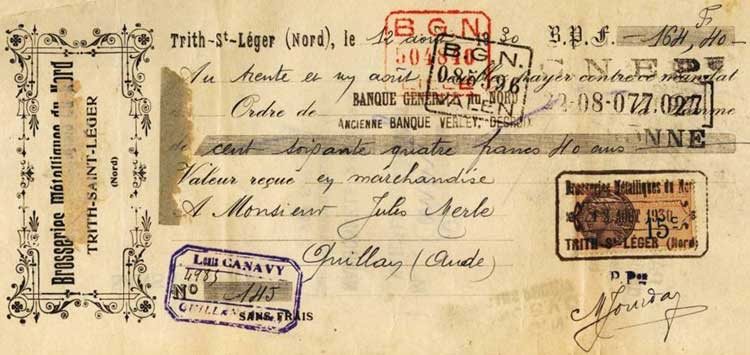 Brosseries Métalliques du Nord
TRITH-SAINT-LÉGER
(Nord)
Trith-St-Léger (Nord), le 12 août 1930 B.P.F. 164,40
F
B.G.N.
504840
B.G.N.
Au trente et un août payer contre ce mandat
Ordre de
BANQUE GÉNÉRALE du NORD
ANCIENNE BANQUE VERLEY, DECROIX
22-08-077.027
de cent soixante quatre francs 40 ans
Valeur reçue en marchandise
A Monsieur Jules Merle
Quillan (Aude)
Brosseries Métalliques du Nord
AOUT 1930
15c
TRITH-St-LÉGER (Nord)
CANAVY
4985
No 145
QUILLAN
SANS FRAIS
P. Pon